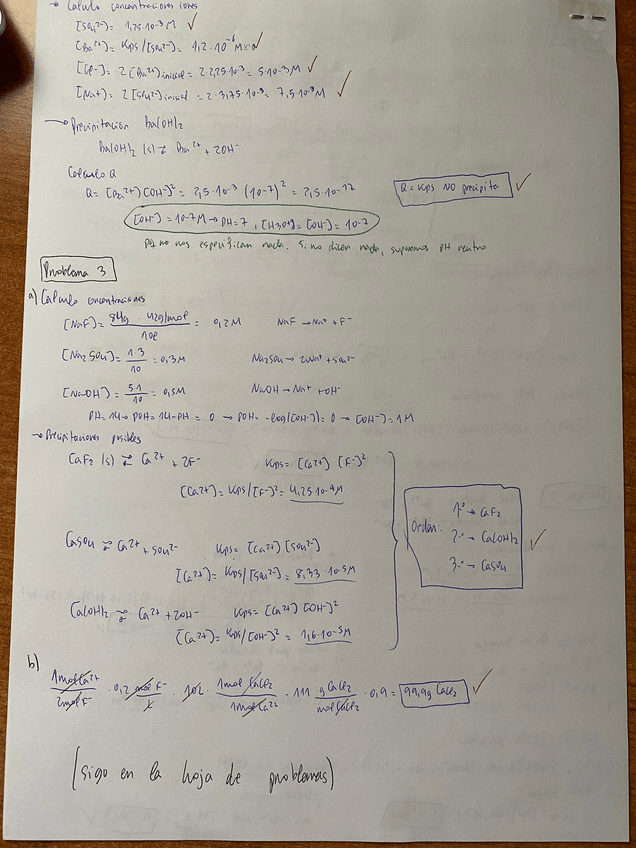 → Cálculo concentraciones iones
[SO₄²⁻] = 1,25·10⁻³ M ✓
[Ba²⁺] = Kps/[SO₄²⁻] = 1,2·10⁻⁶ M
[Cl⁻] = 2 [Ba²⁺]inicial = 2·2,25·10⁻³ = 5·10⁻³ M ✓
[Na⁺] = 2 [SO₄²⁻]inicial = 2·3,75·10⁻³ = 7,5·10⁻³ M ✓
→ Precipitación Ba(OH)₂
Ba(OH)₂ (s) ⇄ Ba²⁺ + 2OH⁻
Cálculo Q
Q = [Ba²⁺][OH⁻]² = 2,5·10⁻³ (10⁻⁷)² = 2,5·10⁻¹⁷ Q < Kps NO precipita ✓
[OH⁻] = 10⁻⁷ M → PH = 7, [H₃O⁺] = [OH⁻] = 10⁻⁷
no nos especifican nada. Si no dicen nada, suponemos PH neutro
Problema 3
a) Cálculo concentraciones
[NaF] = 84g · 42g/mol / 10l = 0,2 M NaF → Na⁺ + F⁻
[Na₂SO₄] = 1·3 / 10 = 0,3 M Na₂SO₄ → 2Na⁺ + SO₄²⁻
[NaOH] = 5·1 / 10 = 0,5 M NaOH → Na⁺ + OH⁻
PH = 14 → POH = 14 - PH = 0 → POH = -log[OH⁻] = 0 → [OH⁻] = 1 M
→ Precipitaciones posibles
CaF₂ (s) ⇄ Ca²⁺ + 2F⁻ Kps = [Ca²⁺] [F⁻]²
[Ca²⁺] = Kps/[F⁻]² =
CaSO₄ ⇄ Ca²⁺ + SO₄²⁻ Kps = [Ca²⁺] [SO₄²⁻]
[Ca²⁺] = Kps/[SO₄²⁻] = 8,33·10⁻⁵ M
Ca(OH)₂ ⇄ Ca²⁺ + 2OH⁻ Kps = [Ca²⁺] [OH⁻]²
[Ca²⁺] = Kps/[OH⁻]² = 1,6·10⁻⁵ M
Orden:
1º → CaF₂
2º → Ca(OH)₂
3º → CaSO₄
✓
b)
1mol Ca²⁺ / 2mol F⁻ · 0,2 mol F⁻ / l · 10l · 1mol CaCl₂ / 1mol Ca²⁺ · 111 g CaCl₂ / mol CaCl₂ · 0,9 = 99,9g CaCl₂ ✓
(sigo en la hoja de problemas)